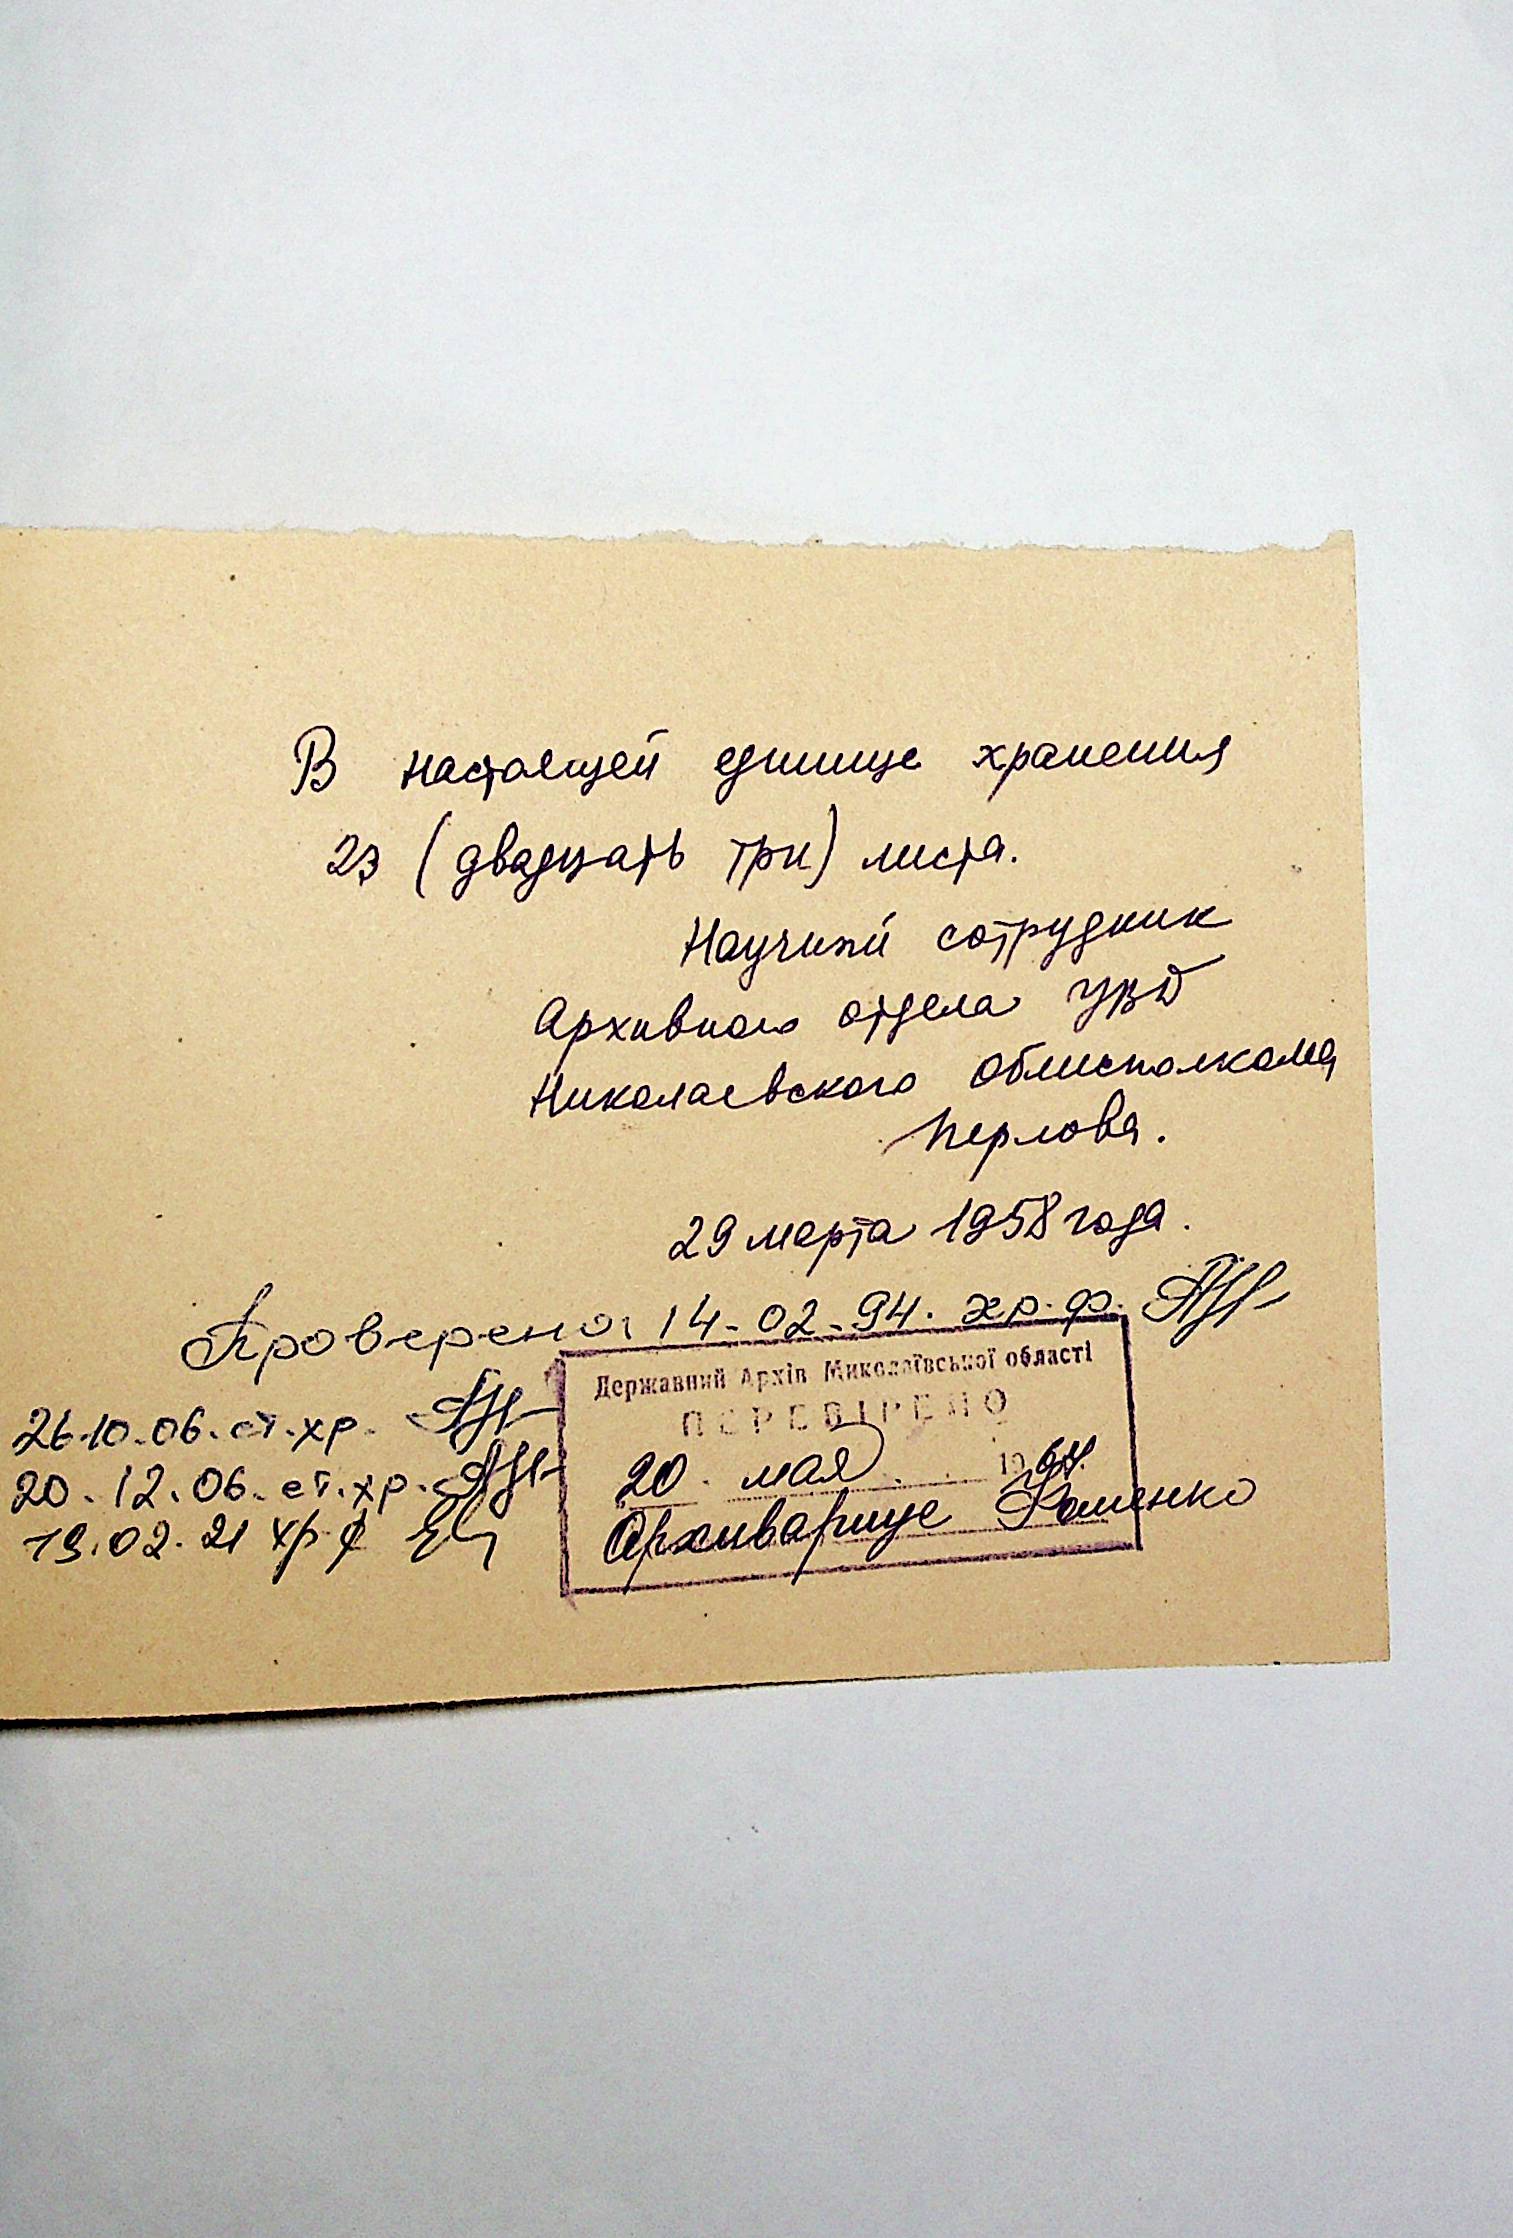 В настоящей единице хранения
23 (двадцать три) листа.
Научный сотрудник
Архивного отдела УВД
Николаевского облисполкома
Перлова.
29 марта 1958 года.
Проверено: 14-02-94. хр.ф.
Державний Архів Миколаївської області
ПЕРЕВІРЕНО
26.10.06. ст.хр.
20 мая 19
20.12.06. ст.хр.
Архивариус Фоменко
19.02.21 хр ф